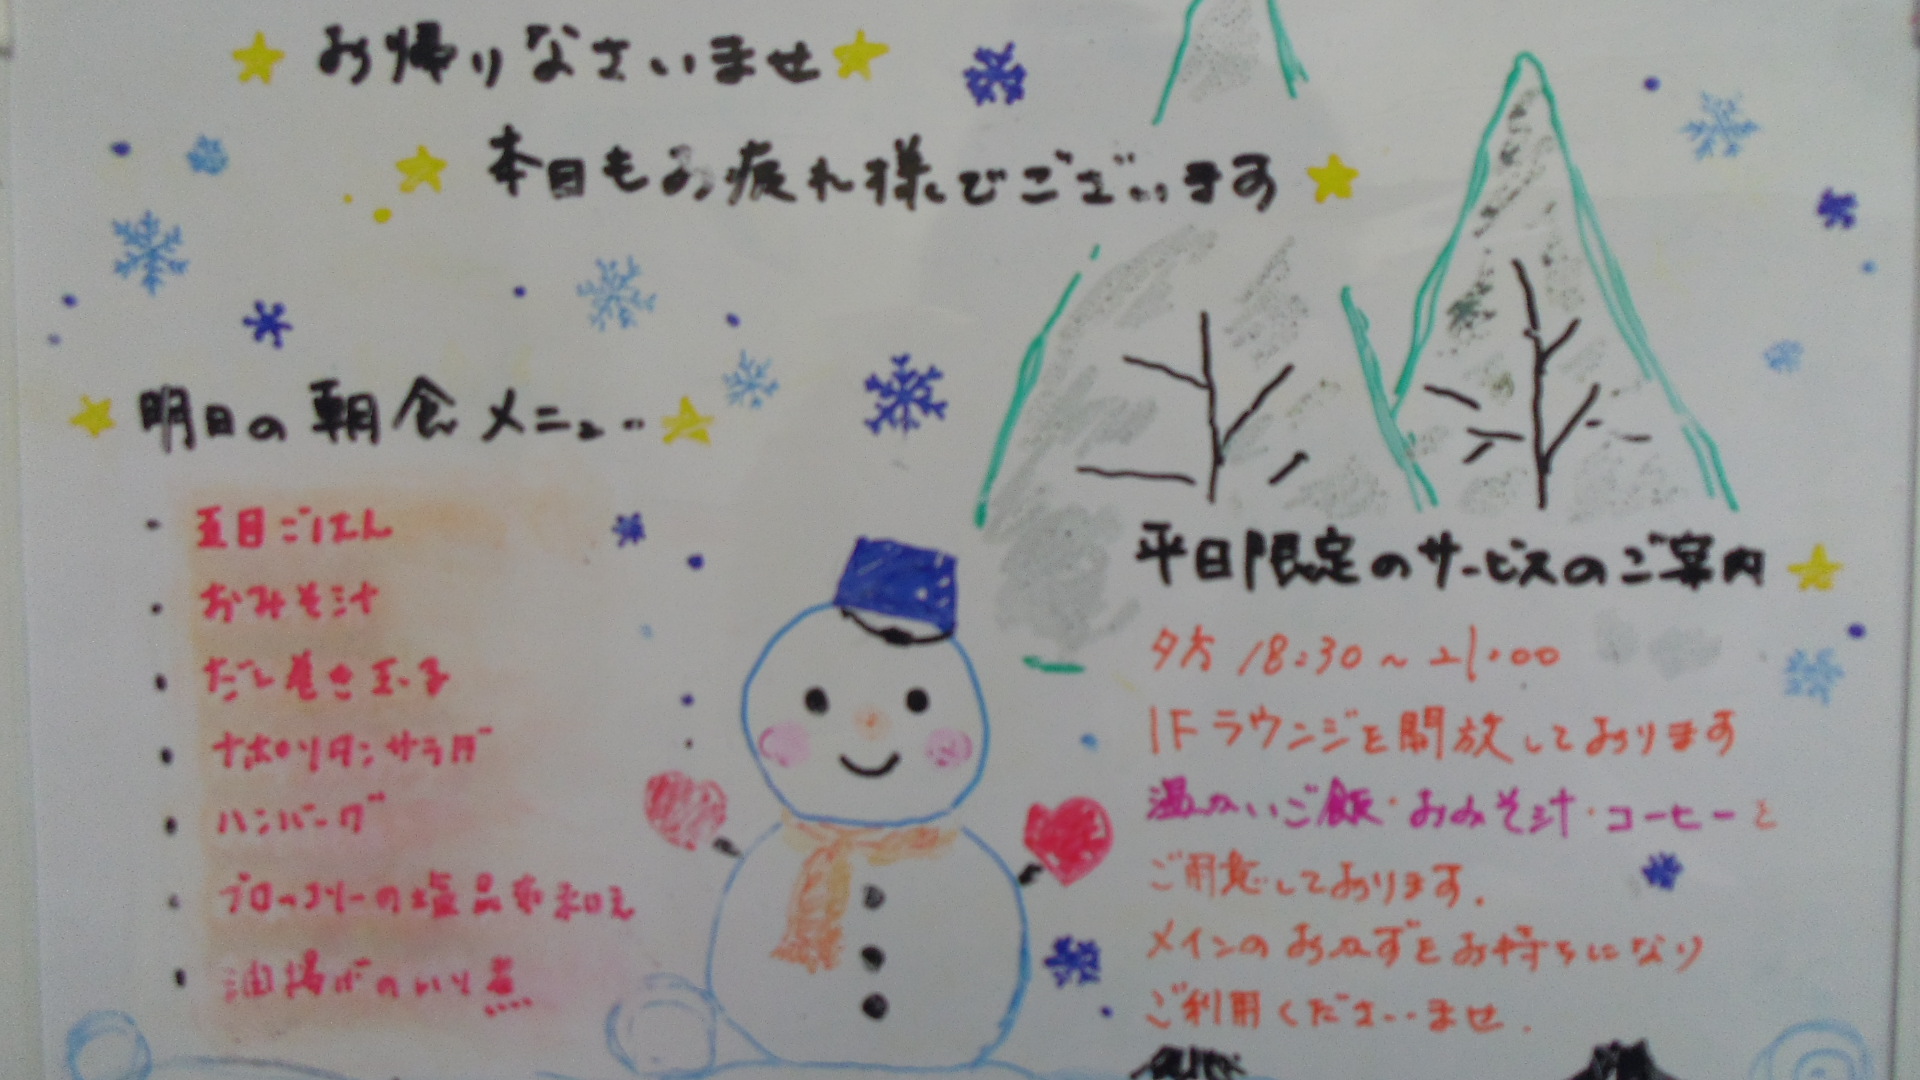 お帰りなさいませ
本日もお疲れ様でございます
明日の朝食メニュー
・五目ごはん
・おみそ汁
・だし巻き玉子
・ナポリタンサラダ
・ハンバーグ
・ブロッコリーの塩昆布和え
・油揚げのいり煮
平日限定のサービスのご案内
夕方 18:30～21:00
1Fラウンジを開放しております
温かいご飯・おみそ汁・コーヒーと
ご用意しております.
メインのおかずをお持ちになり
ご利用くださいませ.